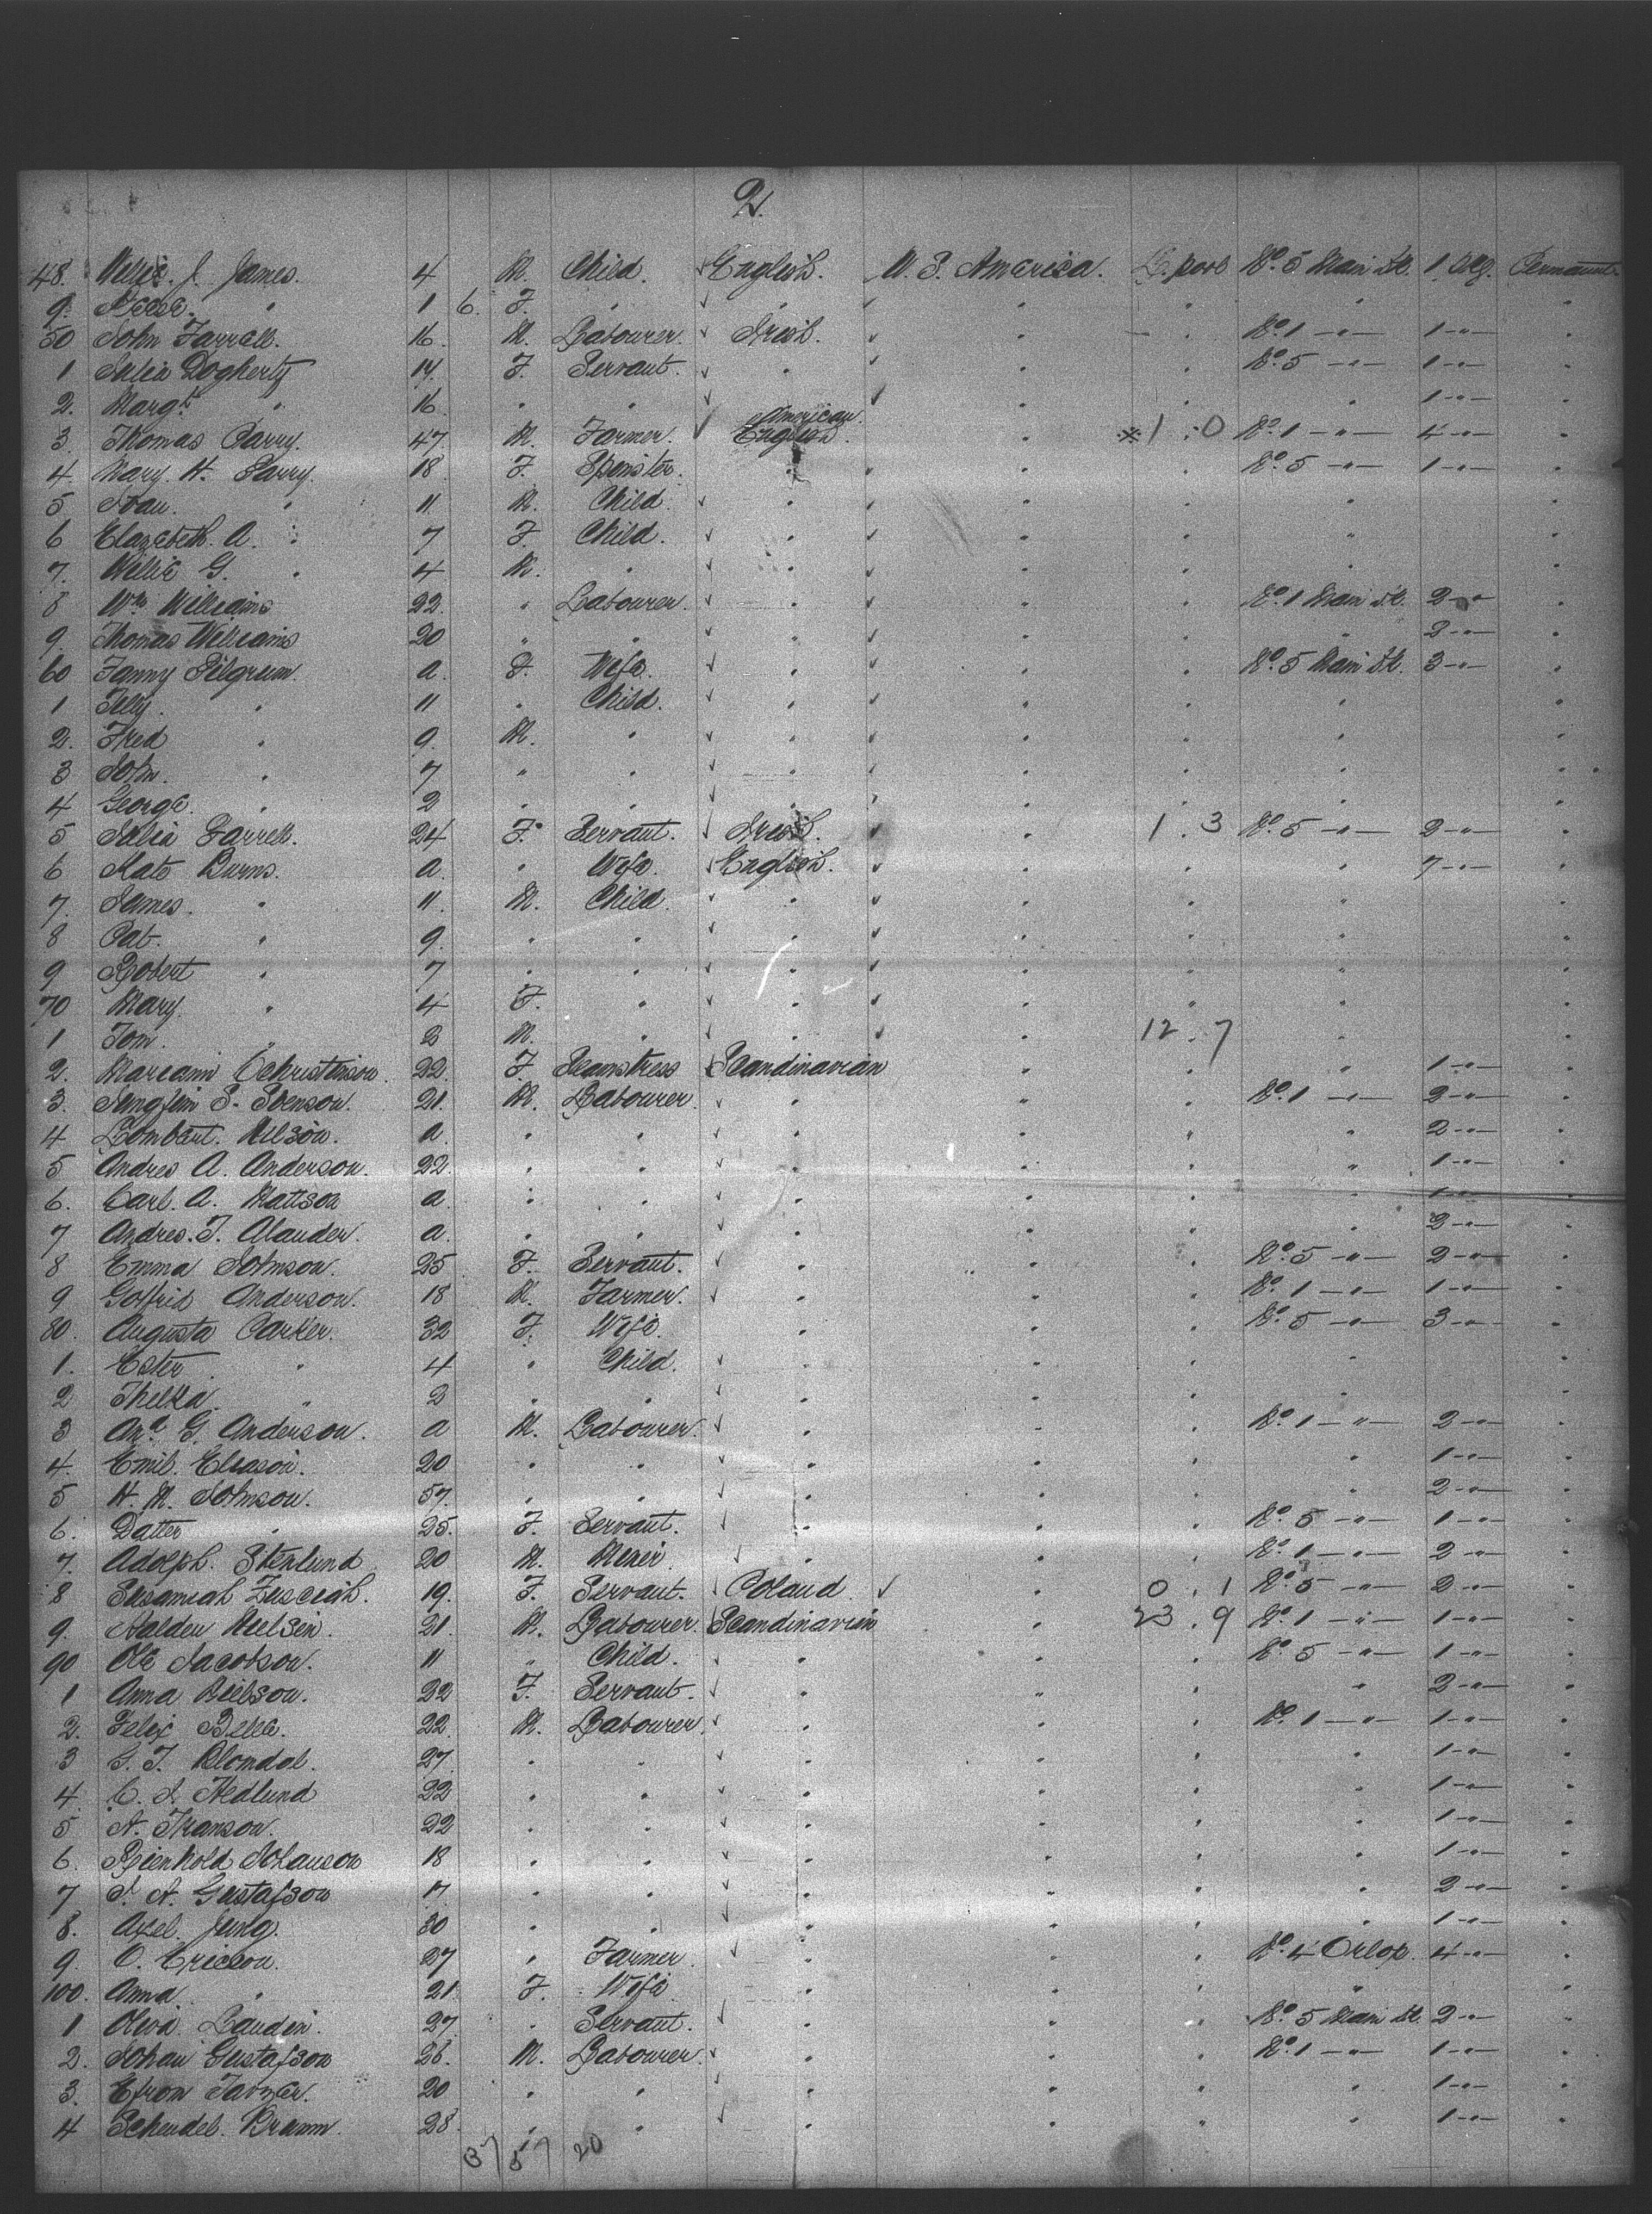 2.
48. Willie. J. James. 4 M. Child. ✓ English. U. S. America. L. pool No. 5 Main Dk. 1 Pkg. Permanent
9. " 1 6. F. " ✓ " " " " "
50 John Farrell. 16. M. Labourer. ✓ Irish. ✓ " " No. 1 — " — 1 - " - "
1 Julia Dogherty 14. F. Servant. ✓ " ✓ " " No. 5 — " — 1 - " - "
2. Margt. " 16. " " ✓ ✓ " " " 1 - " - "
American.
3 Thomas Parry. 47 M. Farmer. ✓ English. " * 1 . 0 No. 1 — " — 4 - " - "
4 Mary. H. Parry. 18 F. Spinster. " ✓ " " No. 5 — " — 1 - " - "
5 Evan. " 11 M. Child ✓ " ✓ " " " "
6 Elazebeth. A. " 7 F. Child. ✓ " ✓ " " " "
7. Willie G. " 4 M. " ✓ " ✓ " " " "
8 Wm Williams 22. " Labourer. ✓ " ✓ " " No. 1 Main Dk. 2 - " - "
9. Thomas Williams 20 " " ✓ " ✓ " " " 2 - " - "
60 Fanny Pilgrum. a. F. Wife. ✓ " ✓ " " No. 5 Main Dk. 3 - " - "
1 " 11 " Child. ✓ " ✓ " " " "
2. Fred " 9. M. " ✓ " ✓ " " " "
3 John. " 7 " " ✓ " ✓ " " " "
4 George. " 2 " " ✓ " ✓ " " " "
5 Julia Farrell. 24 F. Servant. ✓ Irish. ✓ " 1 . 3 No. 5 — " — 2 - " - "
6 Kate Burns. a. " Wife. ✓ English. ✓ " " " 7 - " - "
7. James. " 11. M. Child. ✓ " ✓ " " " "
8 Pat. " 9. " " ✓ " ✓ " " " "
9 Robert " 7 " " ✓ " ✓ " " " "
70 Mary. " 4 F. " ✓ " ✓ " " " "
1 Tom. " 2 M. " ✓ " ✓ " 12 . 7 " "
2. Mariann Cchristinson. 22. F. Seamstress ✓ Scandinavian " " " 1 - " - "
3. S. Svenson. 21. M. Labourer. ✓ " " " No. 1 — " — 2 - " - "
4 Nilson. a. " " ✓ " " " " 2 - " - "
5 Andres A. Anderson. 22. " " ✓ " " " " 1 - " - "
6. Carl. A. Mattson a. " " ✓ " " " " 1 - " - "
7 Andres. J. Alander. a. " " ✓ " " " " 2 - " - "
8 Emma Johnson. 25 F. Servant. ✓ " " " No. 5 — " — 2 - " - "
9 Gotfrid Anderson. 18 M. Farmer. ✓ " " " No. 1 — " — 1 - " - "
80. Augusta Parker. 32 F. Wife. " " " No. 5 — " — 3 - " - "
1. Ester " 4 " Child. ✓ " " " " "
2 Thelka. " 2 " " ✓ " " " " "
3 And. G. Anderson. a M. Labourer. ✓ " " " No. 1 — " — 2 - " - "
4. Emil. Eliason. 20 " " ✓ " " " " 1 - " - "
5 H. M. Johnson. 57. " " ✓ " " " " 2 - " - "
6. Datter " 25. F. Servant. ✓ " " " No. 5 — " — 1 - " - "
7. Adolph. Stenlund 20 M. " " " No. 1 — " — 2 - " - "
8 19. F. Servant. ✓ Poland ✓ " 0 . 1 No. 5 — " — 2 - " - "
9. Halden Nielsin. 21. M. Labourer. ✓ Scandinavian " 23 . 9 No. 1 — " — 1 - " - "
90 Ole Jacobson. 11 " Child. ✓ " " " No. 5 — " — 1 - " - "
1 Anna Nielson. 22 F. Servant. ✓ " " " " 2 - " - "
2. Felix 22. M. Labourer. ✓ " " " No. 1 — " — 1 - " - "
3 Blomdal. 27. " " " " " " 1 - " - "
4. C. J. Hedlund 22 " " ✓ " " " " 1 - " - "
5 A. Franson. 22 " " ✓ " " " " 1 - " - "
6. Rienhold Johanson 18 " " ✓ " " " " 1 - " - "
7 A. Gustafson 17 " " ✓ " " " " 2 - " - "
8. Axel. Jung. 30 " " ✓ " " " " 1 - " - "
9. O. Ericson. 27 " Farmer. ✓ " " " No. 4 Orlop. 4 - " - "
100. Anna " 21 F. Wife " " " " "
1 Olivia Landin. 27. " Servant. ✓ " " " No. 5 Main Dk. 2 - " - "
2. Johan Gustafson 28. M. Labourer. ✓ " " " No. 1 — " — 1 - " - "
3. Efrom 20 " " ✓ " " " " 1 - " - "
4 Schendel. Bramm. 28. " " ✓ " " " " 1 - " - "
37 57 20